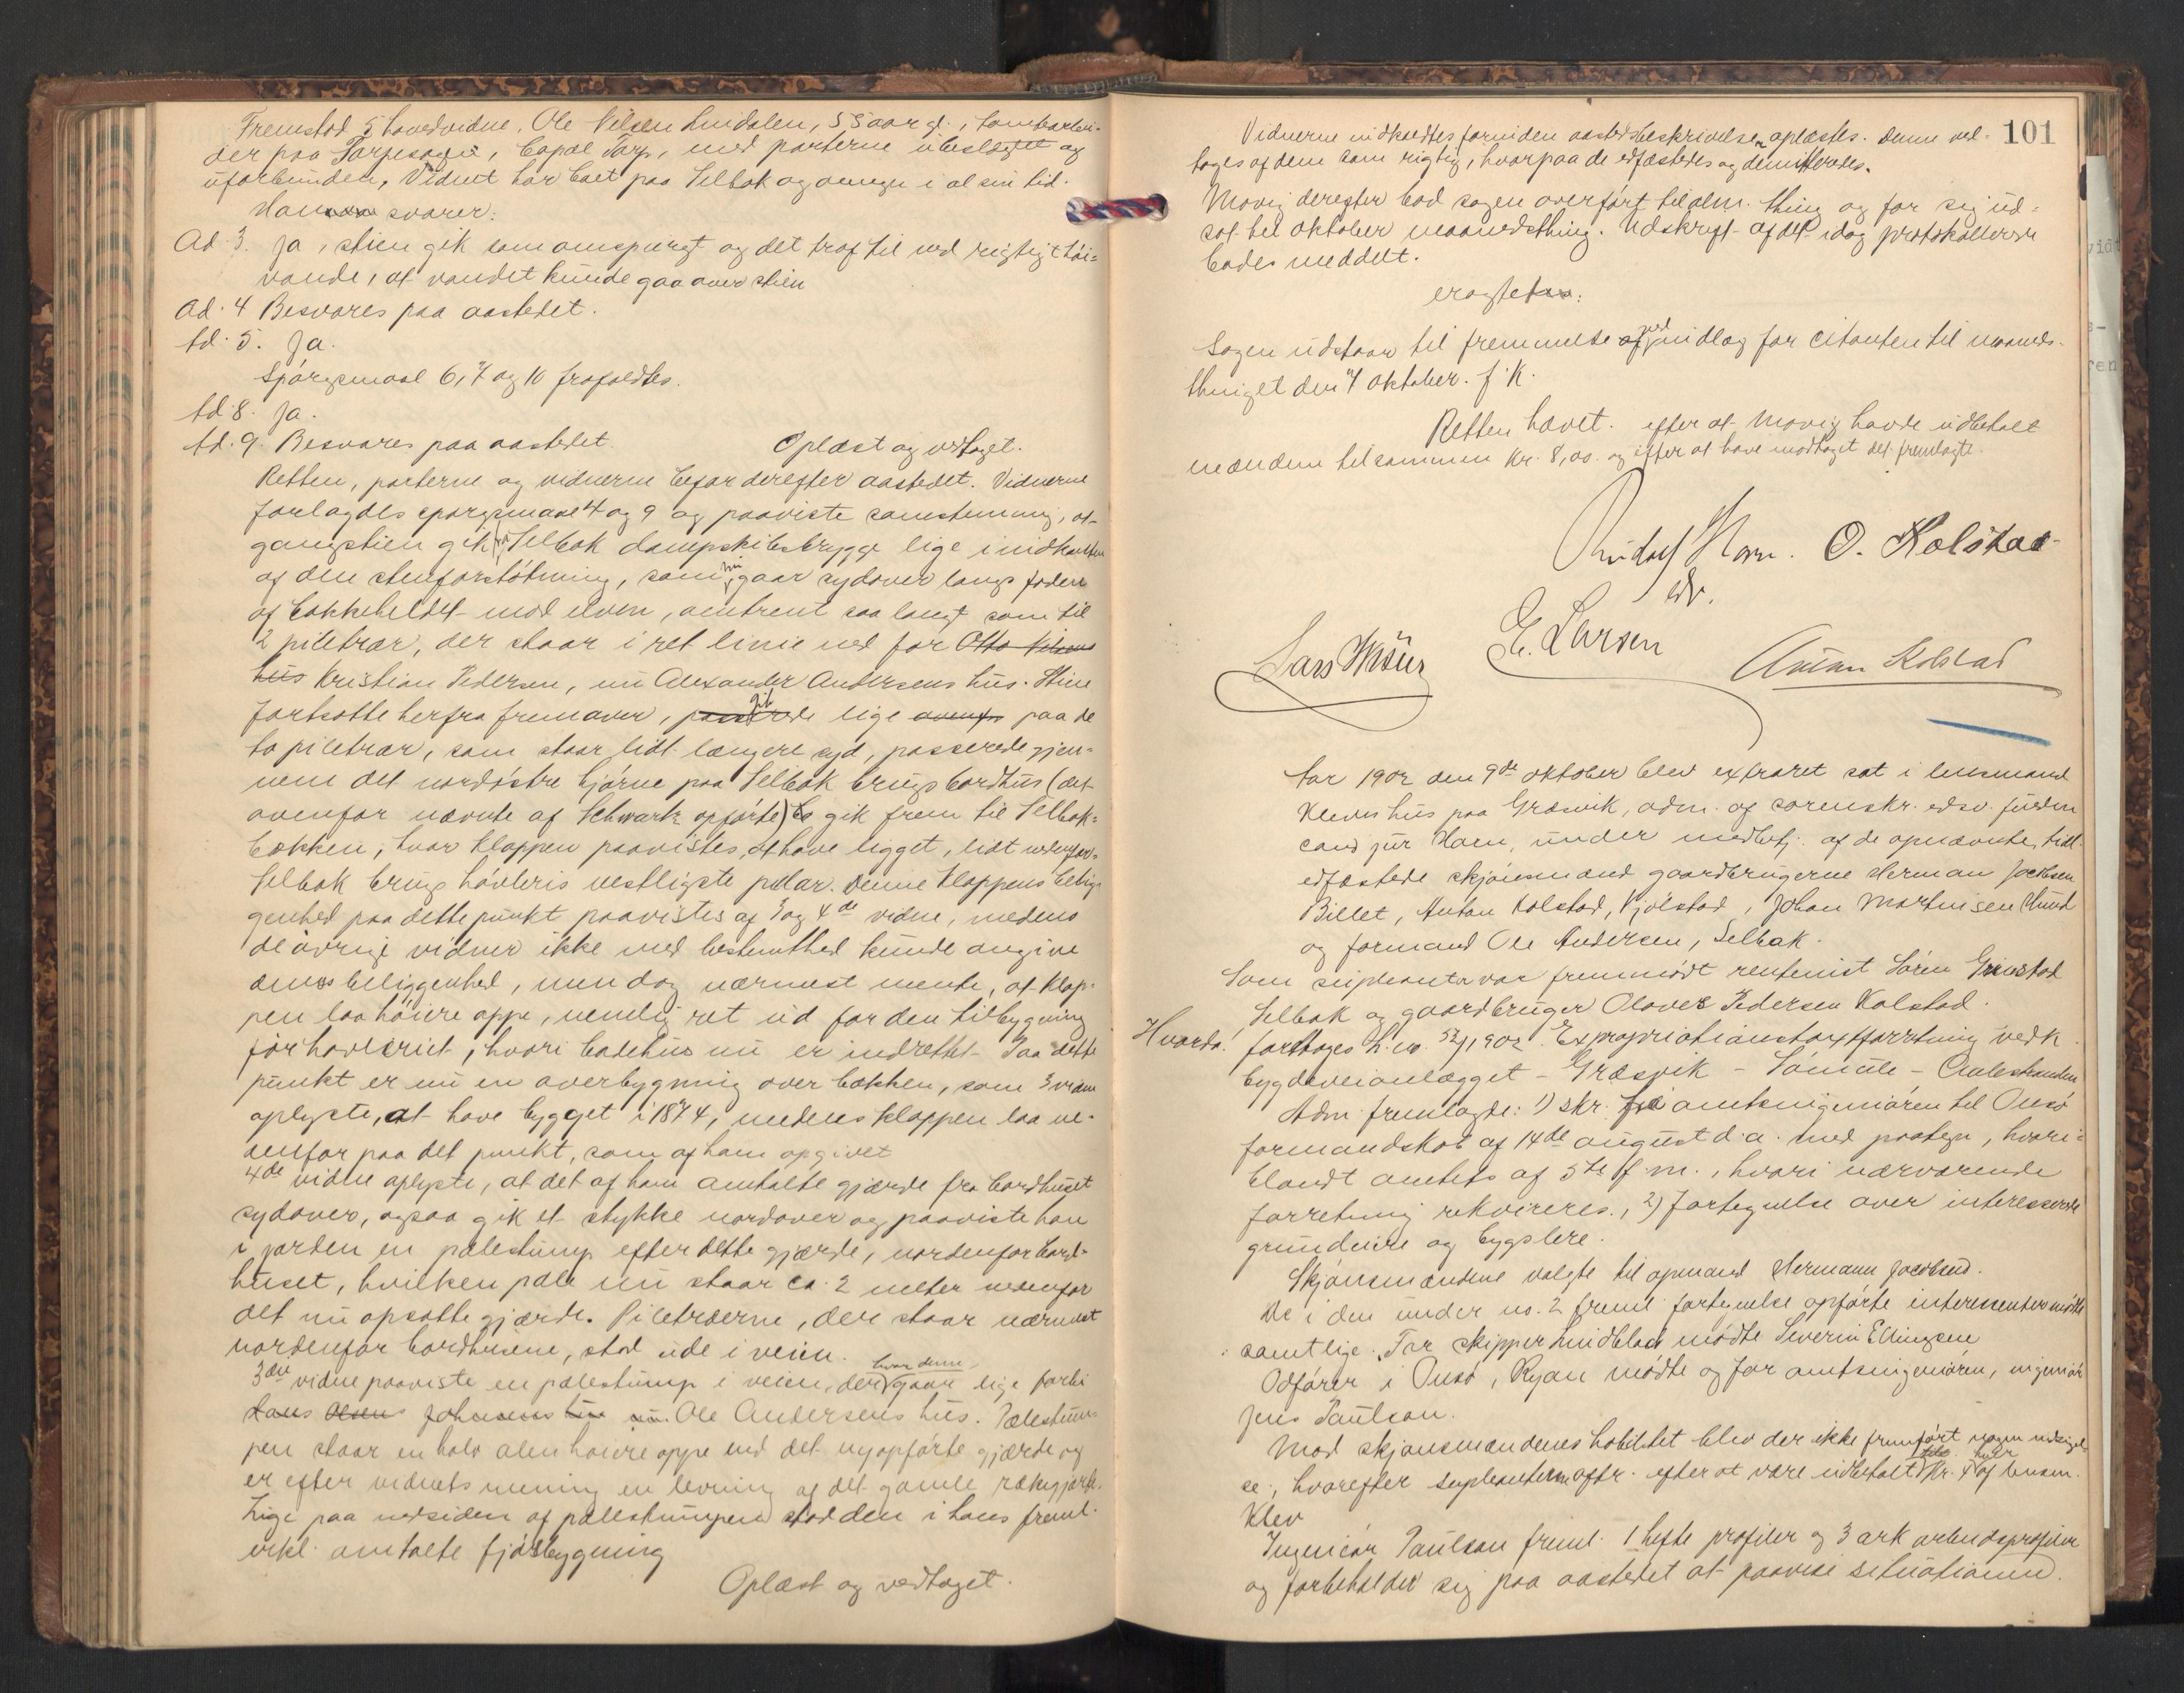 Fremstod 5 hovedvidne, Ole Nilsen Lundalen, 55 aar gl., tomtearbei-
der paa Torpesagen, bopæl Torp, med parterne ubeslægtet og
uforbunden, Vidnet har boet paa Selbak og omegn i al sin tid.
Han svarer:
Ad 3. Ja, stien gik som omspurgt og det traf til ved rigtigt høi-
vande, at vandet kunde gaa over stien
Ad. 4 Besvares paa aastedet.
Ad. 5. Ja.
Spørgsmaal 6, 7 og 10 frafaldtes.
Ad. 8. Ja.
Ad. 9. Besvares paa aastedet. Oplæst og vedtaget.
Retten, parterne og vidnerne befor derefter aastedet. Vidnerne
forlagdes spørgsmaal 4 og 9 og paaviste samstemmig, at
gangstien gik fra Selbak dampskibsbrygge lige i nidkanten
af den stenforstøtning, som nu gaar sydover langs foden
af bakkeheldet mod elven, omtrent saa langt som til
2 piletrær, der staar i ret linie ned for Otto Nilsens
hus Kristian Pedersen, nu Alexander Andersens hus. Stien
fortsatte herfra fremover, passerede gik lige ovenfor paa de
to piletrær, som staar lidt længere syd, passerede gjen-
nem det nordøstre hjørne paa Selbak brugs bordhus (det
ovenfor nævnte af Schwartz opførte) og gik frem til Selbak-
bækken, hvor kloppen paavistes, at have ligget, lidt nedenfor
Selbak brugs høvleris vestligste pelar. Denne kloppens belig-
genhed paa dette punkt paavistes af 3 og 4de vidne, medens
de øvrige vidner ikke med bestemthed kunde angive
dens beliggenhed, men dog nærmest mente, at klop-
pen laa høiere oppe, nemlig ret ud for den tilbygning
for høvleriet, hvori badehus nu er indrettet. Paa dette
punkt er nu en overbygning over bækken, som 3 vidne
oplyste, at have bygget i 1874, medens kloppen laa ne-
denfor paa det punkt, som af ham opgivet
4de vidne oplyste, at det af ham omtalte gjærde fra bordhuset
sydover, ogsaa gik et stykke nordover og paaviste han
i jorden en pælestump efter dette gjærde, nordenfor bord-
huset, hvilken pæle nu staar ca. 2 meter nedenfor
det nu opsatte gjærde. Piletrærne, der staar nærmest
nordenfor bordhusene, stod ude i veien.
3die vidne paaviste en pælestump i veien, der hvor denne gaar lige forbi
Hans Olsens Johnsens hus nu Ole Andersens hus. Pælestum-
pen staar en halv alen høiere oppe end det nyopførte gjærde og
er efter vidnets mening en levning af det gamle rækgjærde.
Lige paa nedsiden af pælestumpen stod den i hans freml.
erkl. omtalte fjøsbygning
Oplæst og vedtaget.
101
Vidnerne indkaldtes forinden aastedsbeskrivelsen oplæstes. Denne ved-
toges af dem som rigtig, hvorpaa de edfæstedes og demitteredes.
Movig derefter bad sagen overført til alm. thing og for sig ud-
sat til oktober maanedsthing. Udskrift af det idag protokollerede
bades meddelt.
eragtes:
Sagen udstaar til fremmelse af ved indlæg for citanten til maaneds-
thinget den 7 oktober. f.k.
Retten hævet. efter at Movig havde udbetalt
mændene tilsammen kr. 8,00. og efter at have modtaget det fremlagte.
Rudolf Horn. O. Kolstad
edv.
Lars E. Larsen Anton Kolstad
Aar 1902 den 9de oktober blev extraret sat i lensmand
Klevs hus paa Græsvik, adm. af sorenskr. edsv. fuldm
cand jur Horn, under medbetj. af de opnævnte, tidl.
edfæstede skjønsmænd gaardbrugerne Herman Jacobsen
Billet, Anton Kolstad, Kjølstad, Johan Martinsen Lund
og formand Ole Andersen, Selbak.
Som supleanter var fremmødt rentenist Søren Grimstad
Selbak og gaardbruger Olaves Pedersen Kolstad.
Hvorda. foretoges h.no. 52/1902. Expropriationstaxtforretning vedk.
bygdeveianlægget - Græsvik - Tomule - Aaleskanden
Adm. fremlagde: 1) skr. fra amtsingeniøren til Onsø
formandskab af 14de august d.a. med paategn, hvori-
blandt amtets af 5te f.m., hvori nærværende
forretning rekvireres., 2) Fortegnelse over interesserede
grundeiere og bygslere.
Skjønsmændene valgte til opmand Hermann Jacobsen.
De i den under no. 2 freml. fortegnelse opførte interessenter mødte
samtlige. For skipper Lindblad mødte Severin Ellingsen
Odfører i Onsø, Ryan mødte og for amtsingeniøren, ingeniør
Jens Paulson.
Mod skjønsmændenes habilitet blev der ikke fremført nogen indsigel-
se, hvorefter supleanterne aftr. efter at være udbetalt kr. 4 hver af lensm.
Klev
Ingeniør Paulson freml. 1 hefte profiler og 3 ark arbeidsprofiler
og forbeholder sig paa aastedet at paavise situationen.